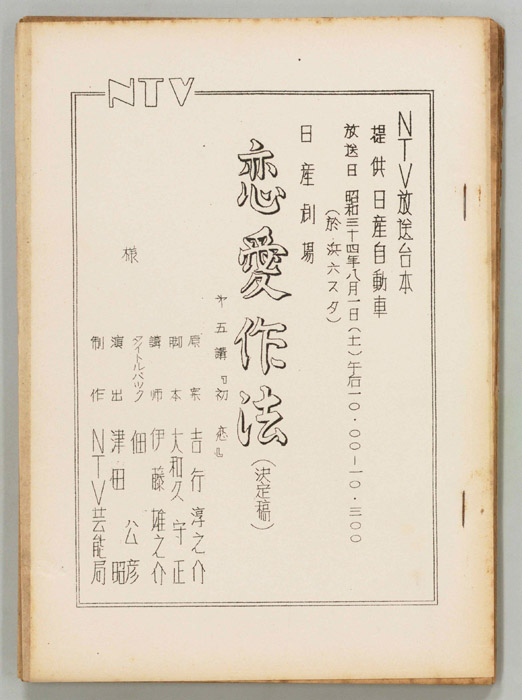 NTV
NTV放送台本
提供 日産自動車
放送日 昭和三十四年八月一日(土)午后一〇・〇〇―一〇・三〇〇
(於 浜六スタ)
日産劇場
恋愛作法(決定稿)
才五講『初恋』
原案 吉行淳之介
脚本 大和久守正
講師 伊藤雄之介
タイトルバック 佃公彦
演出 津田昭
制作 NTV芸能局
様